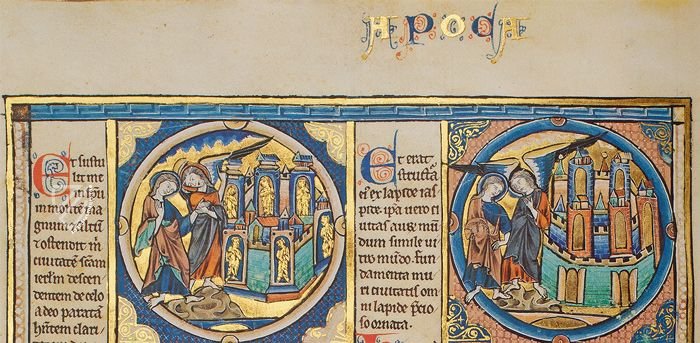 APOCA
Et sustu
lit me
in sp̄u
in montē ma
gnum ⁊ altū
⁊ ostendit m̄
ciuitatē sc̄am
ierl̄m descen
dentem de celo
a deo paratam
hn̄tem clari
Et erat
structa
ei᷒ ex lapide ias
pide. ip̄a uero ci
uitas aurū mū
dum simile ui
tro mūdo. Fun
damenta mu
ri ciuitatis om
ni lapide p̄cio
so ornata.